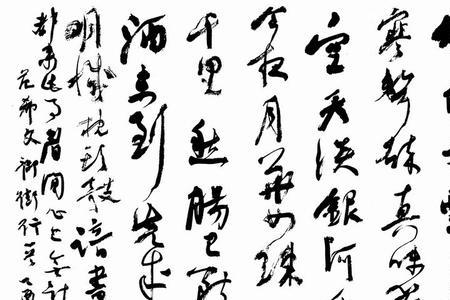 寒聲碎真珠簾
空天淡銀河
今夜月華如練
千里愁腸已斷
酒未到先成
明滅枕頭攲諳盡
都來此事眉間心上無計
范希文御街行